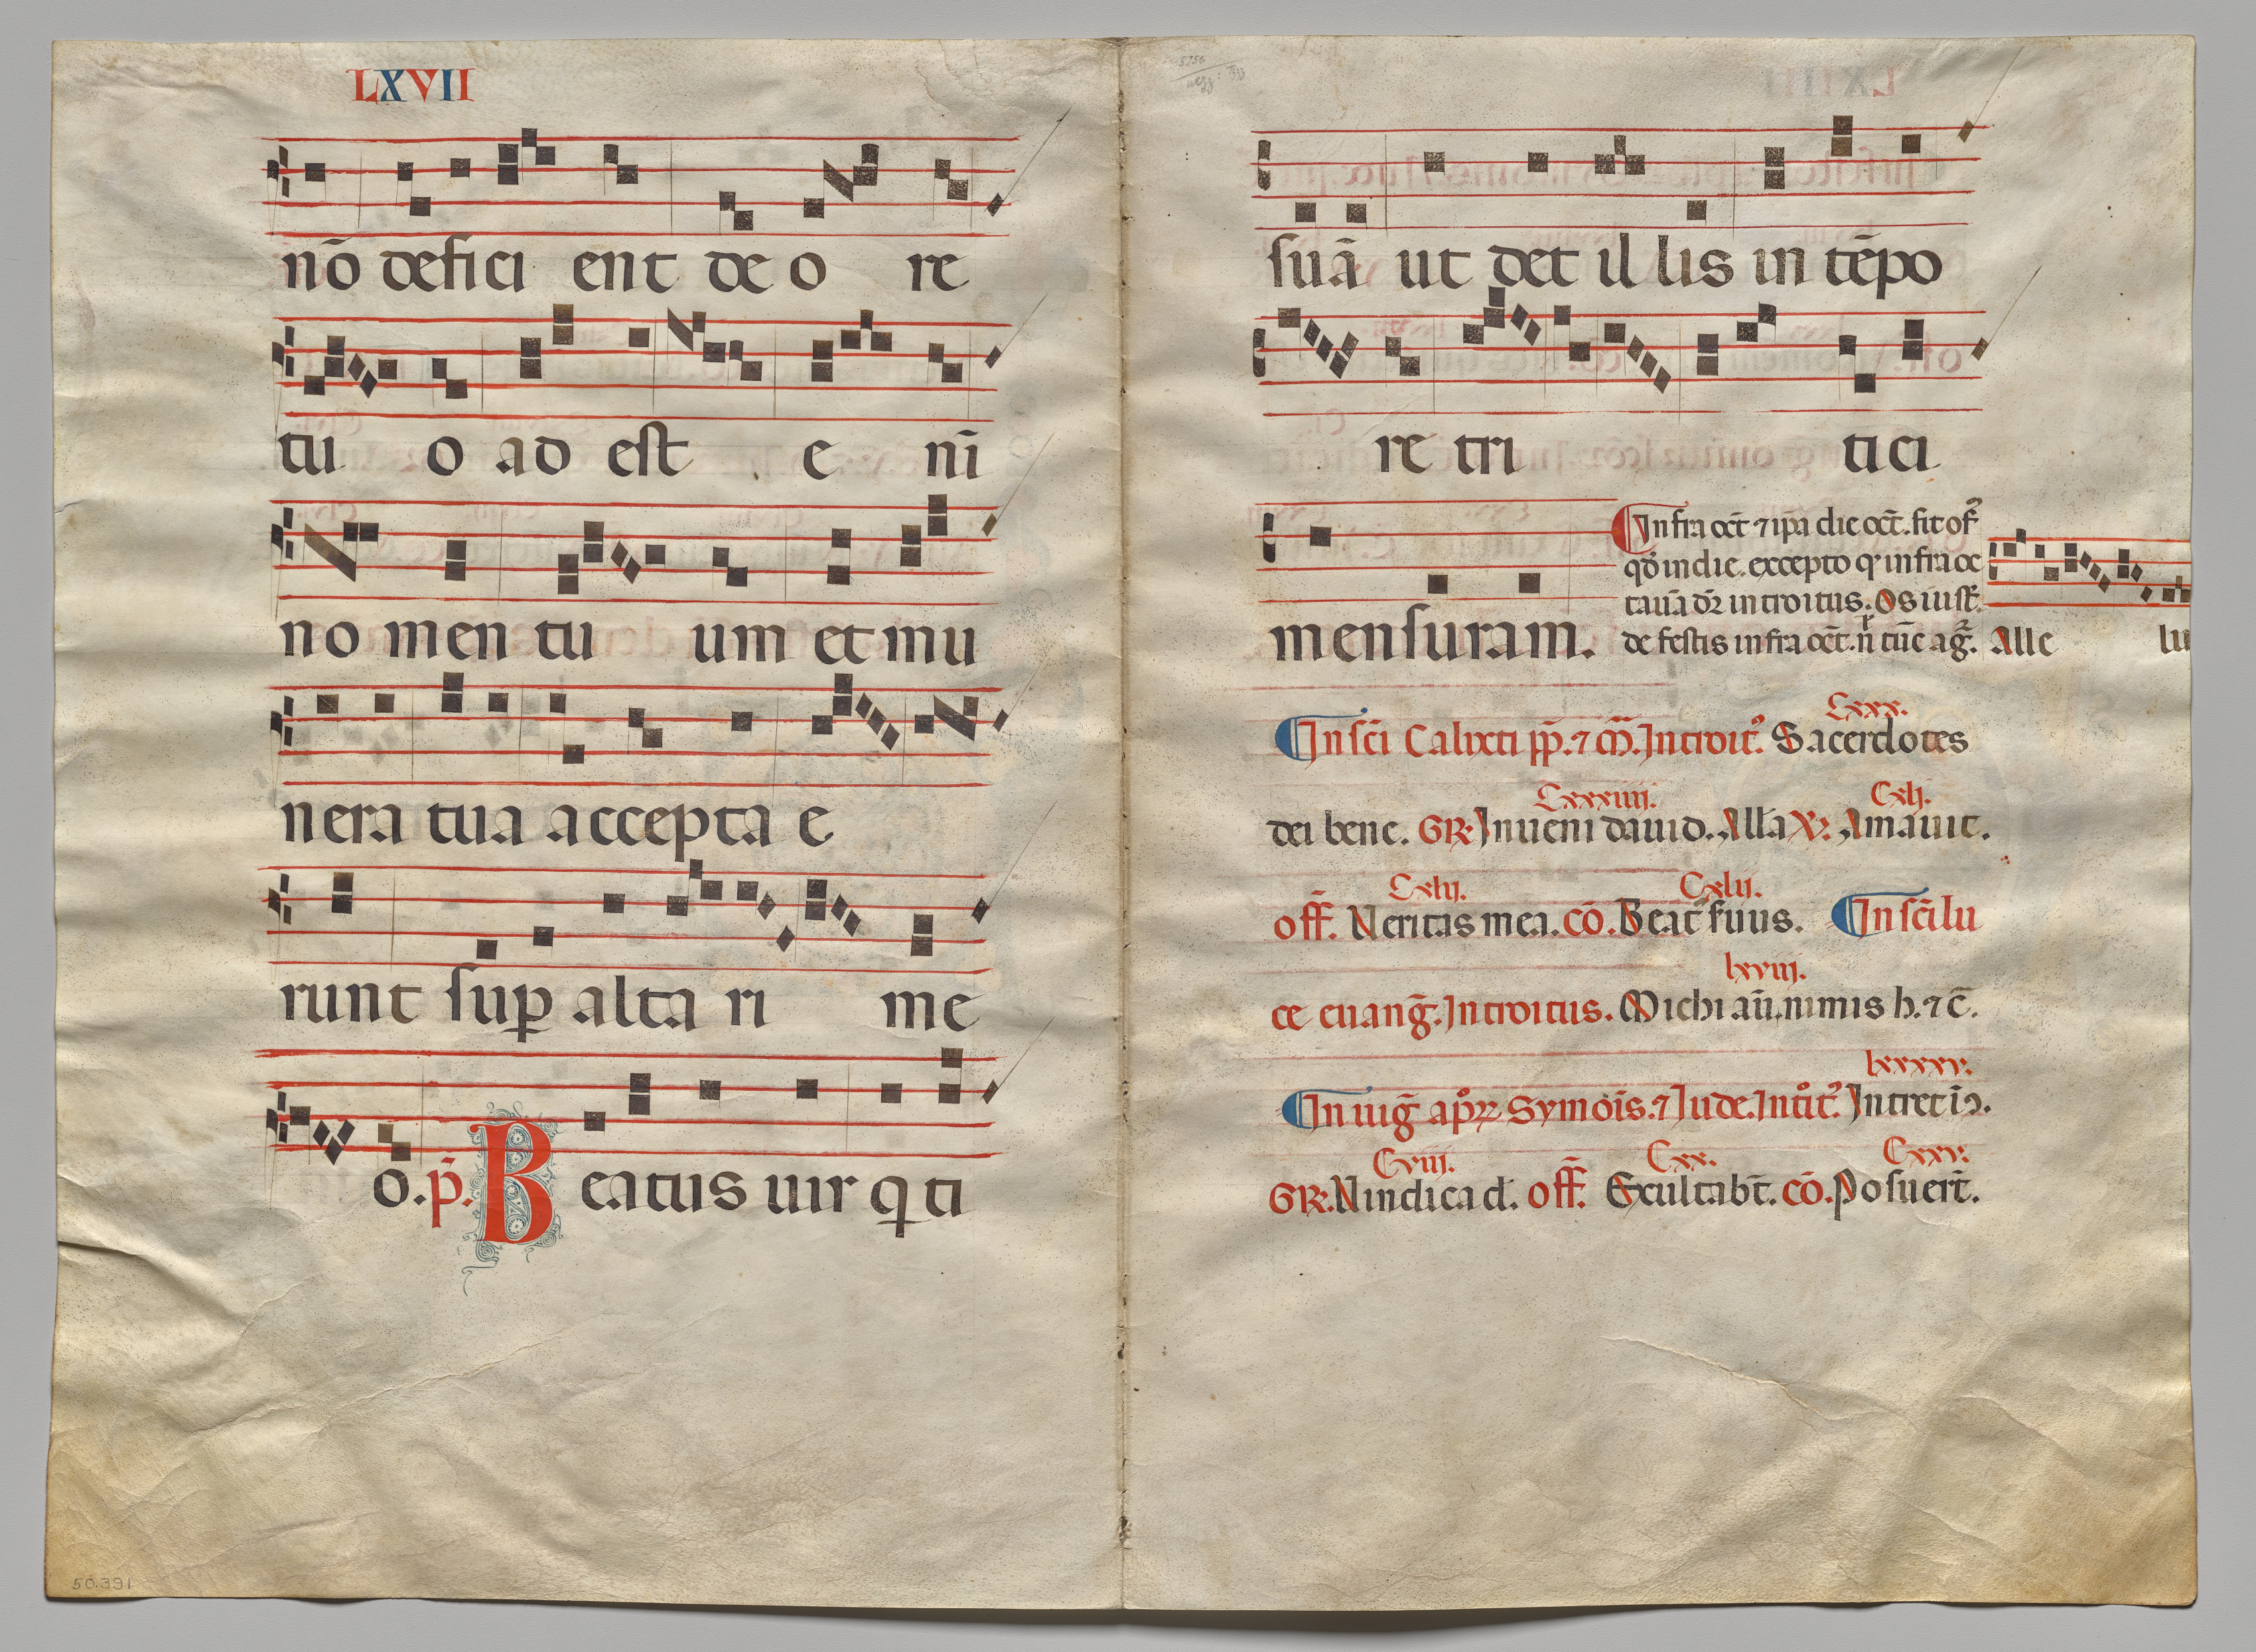 LXVII
nō defici ent de o re
tu o ad est e nī
no men tu um et mu
nera tua accepta e
runt sup alta ri me
o. p̄. Beatus uir q ti
50.391
suā ut det il lis in tēpo
re tri tici
mensuram.
Infra oct̄ ⁊ ip̄a die oct̄. fit of
qd̄ in die. excepto q infra oc
tauā dr̄ introitus. Os iust̄.
de festis infra oct̄. n̄ tūc aḡ. Alle lu
Lxxx.
In sc̄i Calixti pp̄. ⁊ m̄. Introit. Sacerdotes
Cxxxiiij. Cxlj.
dei bene. GR: Inueni dauid. Alla V: Amauit.
Cxliij. Cxlij.
off̄. Veritas mea. cō. Beat̄ seruus. In sc̄i lu
lxviij.
ce euanḡ. Introitus. Michi aū. nimis h. ⁊ c̄.
lxxxxv.
In uiḡ apoꝝ Symōis. ⁊ Iude. Introit. Intret ī
Cviij. Cxx. Cxxv.
GR: Vindica d. off̄. Exultabt̄. cō. Posuert̄.